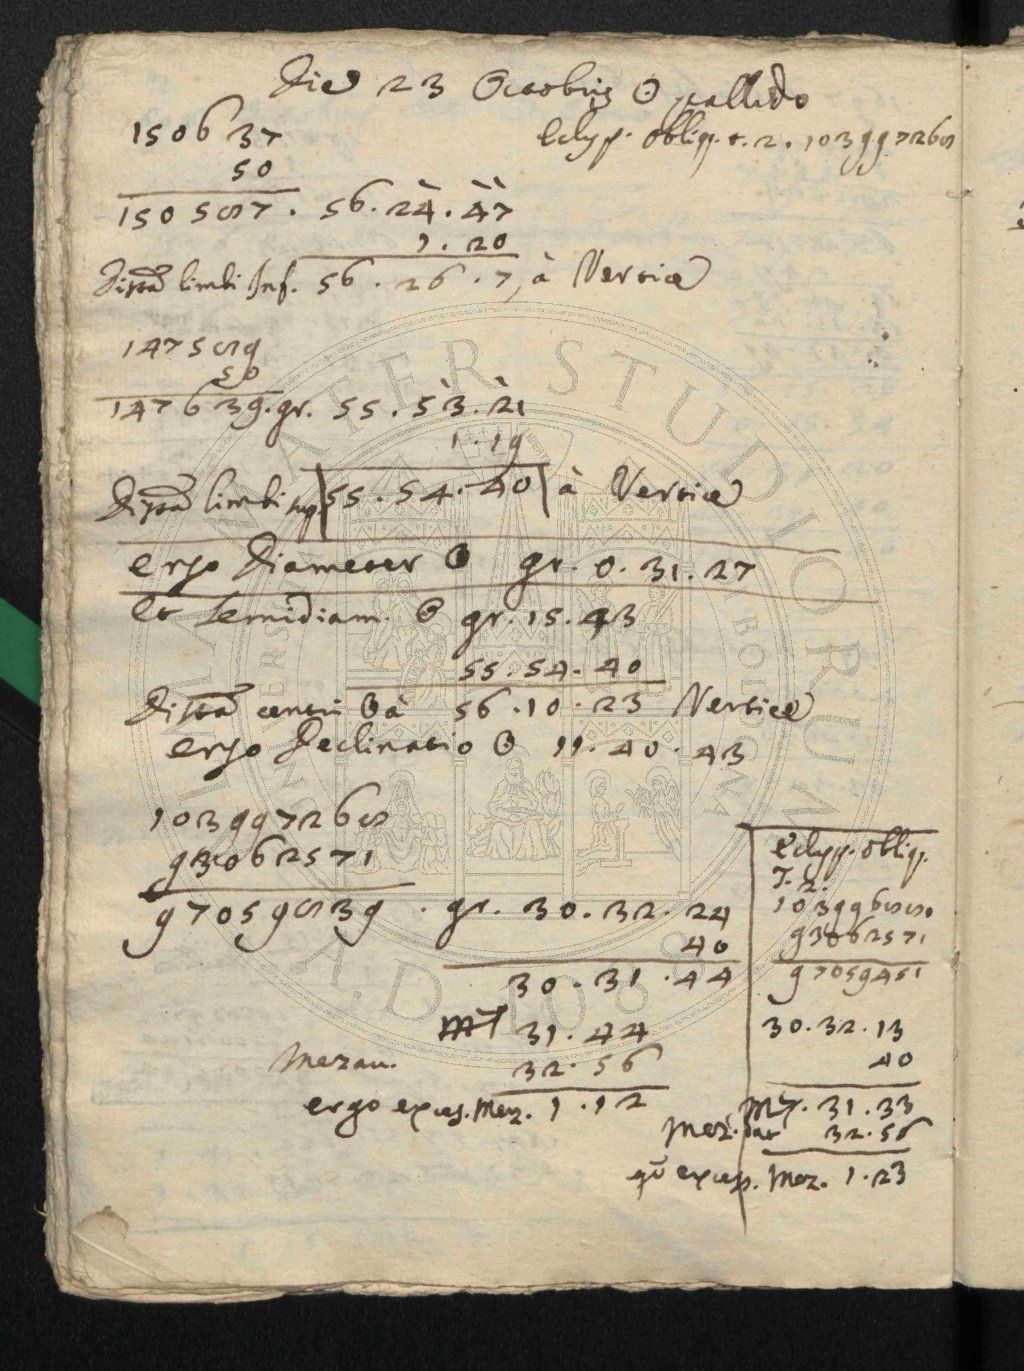 Die 23 Octobris ☉ pallido
Eclyp. obliq. t. 2. 103997268
150637
50
150587. 56. 24. 47
1. 20
Distā limbi Inf. 56. 26. 7, à Vertice
147589
50
147639. gr. 55. 53. 21
1. 19
Distā limbi sup. 55. 54. 40 à Vertice
ergo Diameter ☉ gr. 0. 31. 27
et Semidiam. ☉ gr. 15. 43
55. 54. 40
Distā centri ☉ à 56. 10. 23 Vertice
ergo Declinatio ☉ 11. 40. 43
103997268
93062571
97059839. gr. 30. 32. 24
40
30. 31. 44
31. 44
32. 56
ergo exces. Mez. 1. 12
Eclyp. obliq.
T. 2.
103996880
93062571
97059451
30. 32. 13
40
31. 33
32. 56
Mez. 1. 23
ALMA MATER STUDIORUM
A.D. 1088